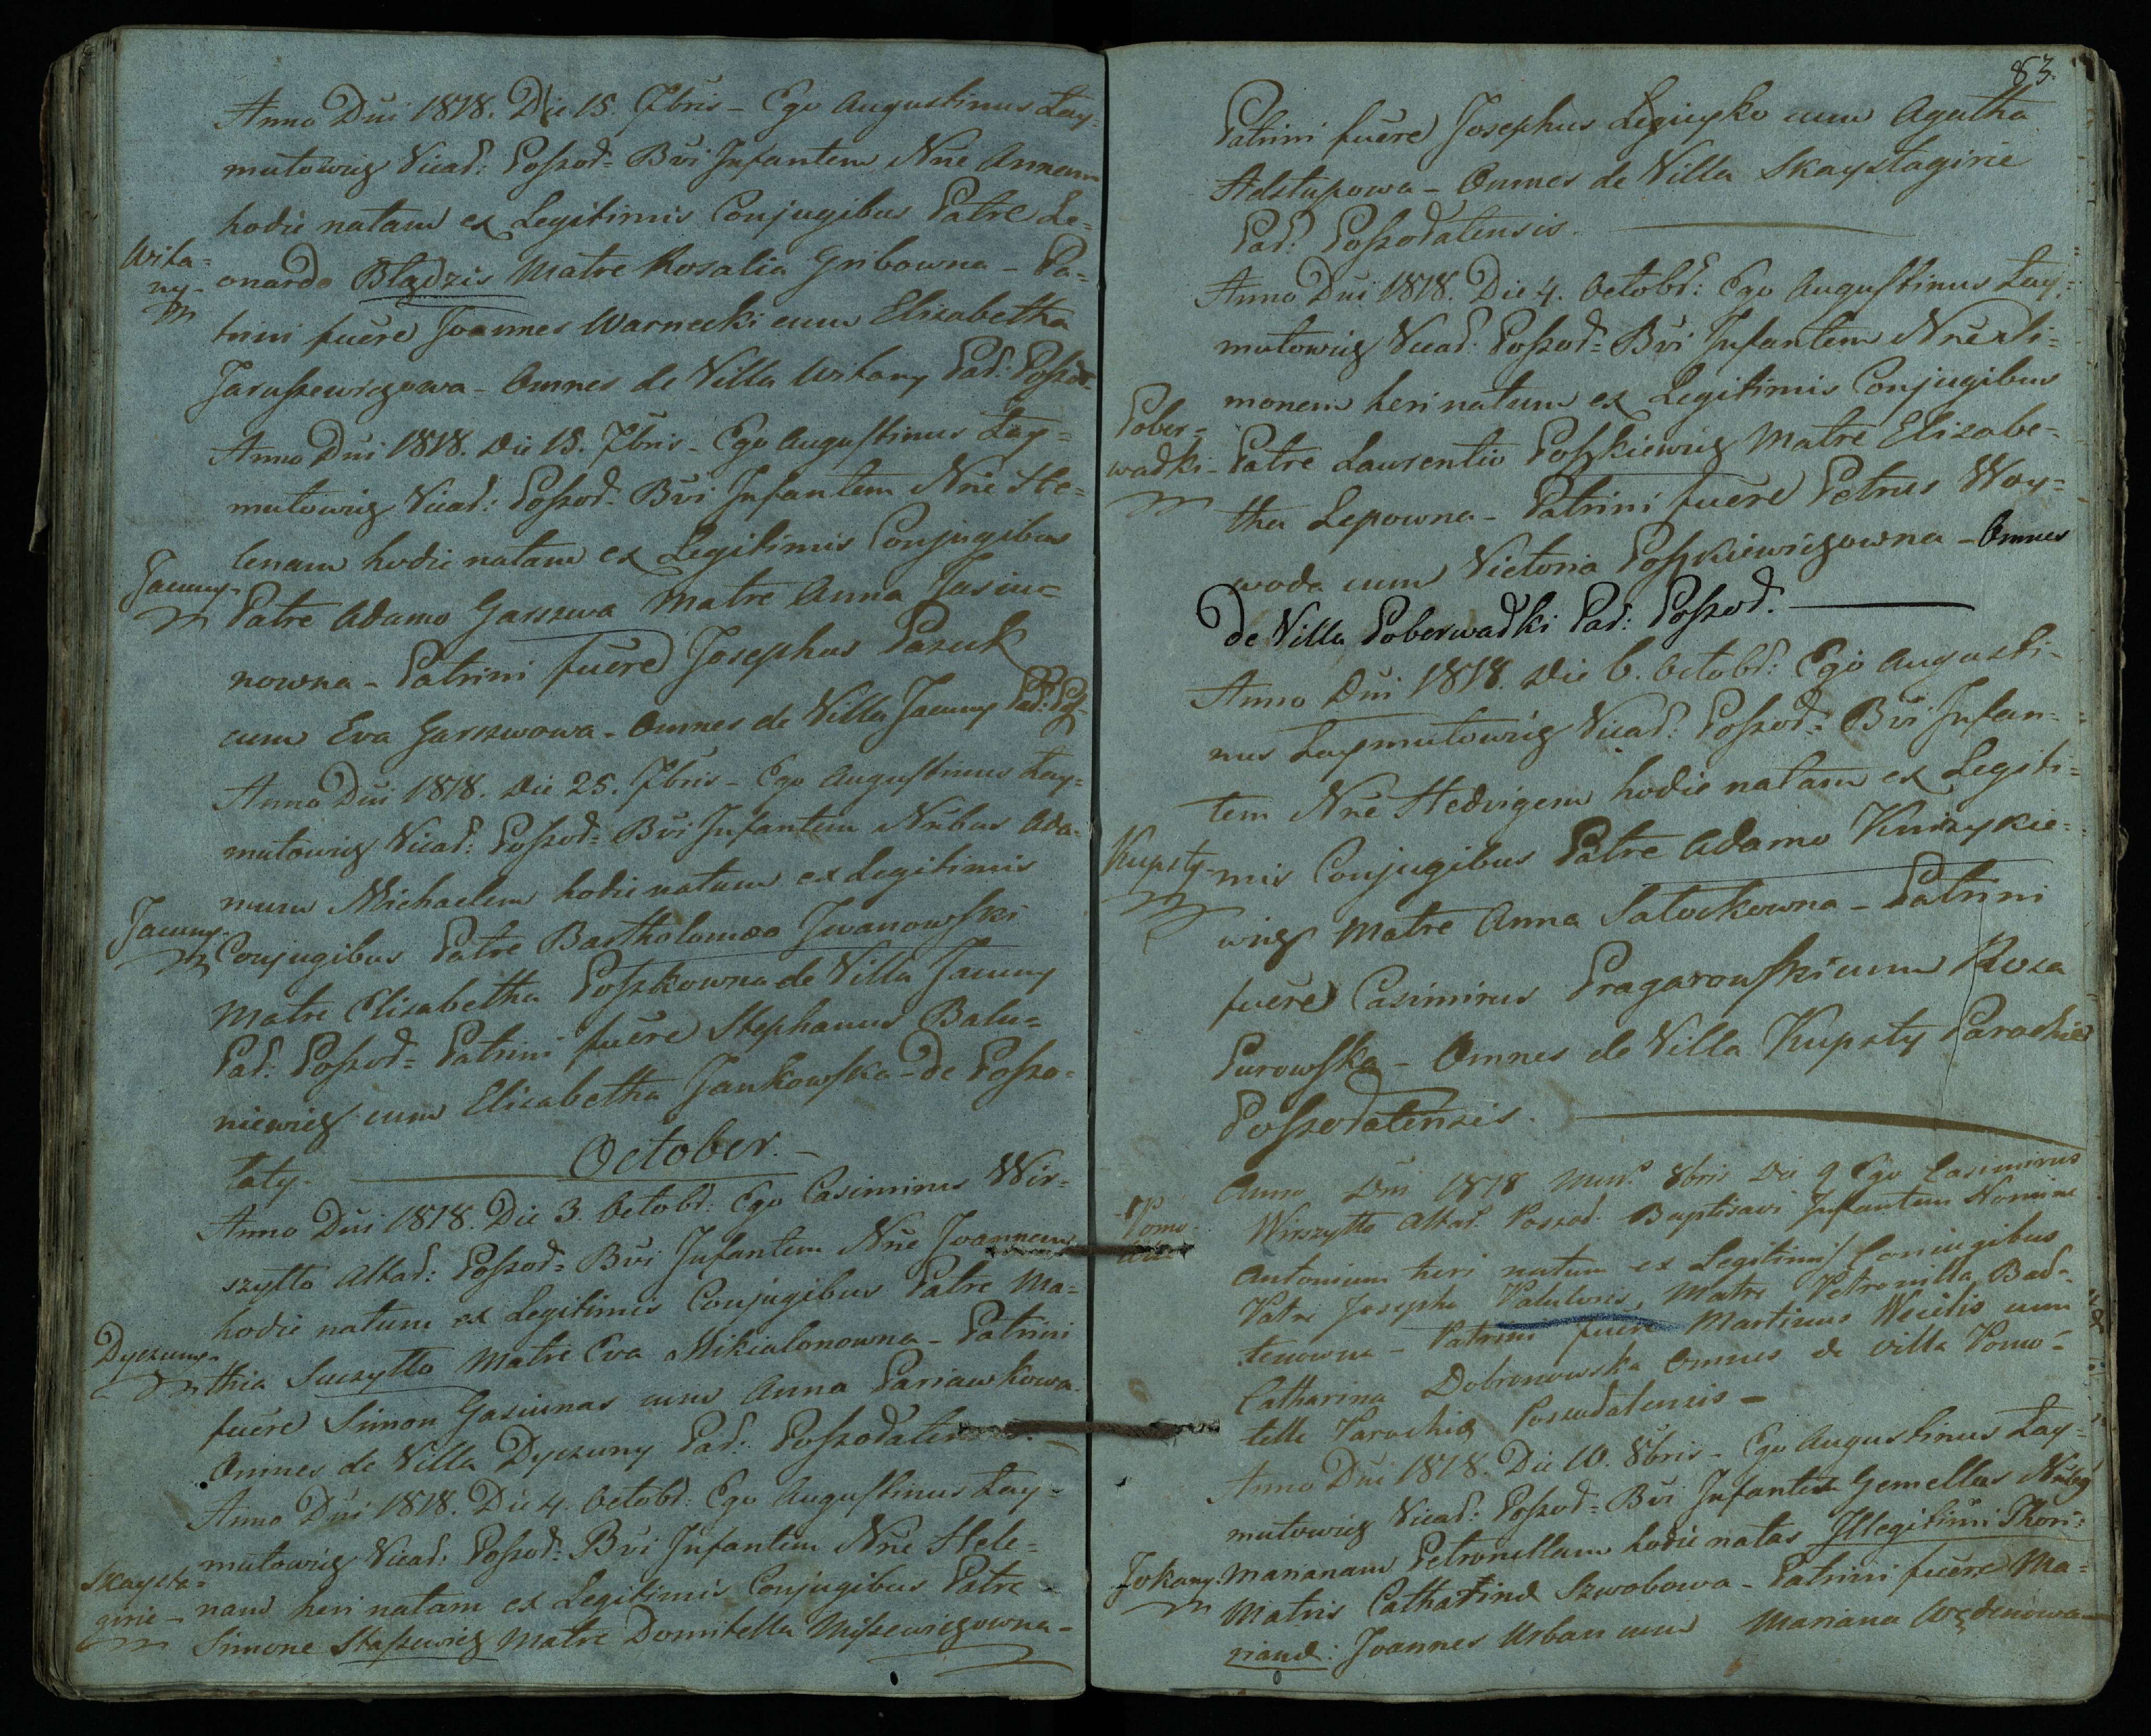 Anno Dni 1818. Die 15. 7bris - Ego Augustinus Lay=
mutowicz Vicar: Poszod= Bvi Infantem Nne Annam
hodie natam ex Legitimis Conjugibus Patre Le=
Wita=
ny-
onardo Błądzis Matre Rosalia Gribowna - Pa=
trini fuere Joannes Warnecki cum Elisabetha
Jaruszewiczowa - Omnes de Villa Witany Par: Poszod.
Anno Dni 1818. Die 15. 7bris - Ego Augustinus Lay=
mutowicz Vicar: Poszod= Bvi Infantem Nne He=
lenam hodie natam ex Legitimis Conjugibus
Jacuny-
Patre Adamo Garszwa Matre Anna Jasiu=
nowna - Patrini fuere Josephus Pazuk
cum Eva Garszwowa - Omnes de Villa Jacuny Par: Posz
Anno Dni 1818. Die 25. 7bris - Ego Augustinus Lay=
mutowicz Vicar: Poszod= Bvi Infantem Nnbus Ada=
mum Michaelem hodie natum ex Legitimis
Jacuny-
Conjugibus Patre Bartholomæo Iwanowski
Matre Elisabetha Poszkowna de Villa Jacuny
Par: Poszod= Patrini fuere Stephanus Balu=
niewicz cum Elisabetha Jankowska - de Poszo=
laty.
October.-
Anno Dni 1818. Die 3. Octobr: Ego Casimirus Wir=
szytło Altar: Poszod= Bvi Infantem Nne Joannem
hodie natum ex Legitimis Conjugibus Patre Ma=
Dyczuny-
thia Suczytło Matre Eva Mikialonowna - Patrini
fuere Simon Gasiunas cum Anna Pariawkowa-
Omnes de Villa Dyczuny Par: Poszodatensis.
Anno Dni 1818. Die 4. Octobr: Ego Augustinus Lay=
mutowicz Vicar: Poszod= Bvi Infantem Nne Hele=
Skaysta=
girie-
nam heri natam ex Legitimis Conjugibus Patre
Simone Staszewicz Matre Domitella Miszewiczowna-
83.
Patrini fuere Josephus Legieyko cum Agatha
Adstupowa - Omnes de Villa Skaystagirie
Par: Poszodatensis.
Anno Dni 1818. Die 4. Octobr: Ego Augustinus Lay=
mutowicz Vicar: Poszod= Bvi Infantem Nne Si=
monem heri natum ex Legitimis Conjugibus
Pober=
wadki-
Patre Laurentio Poszkiewicz Matre Elizabe=
tha Lepowna - Patrini fuere Petrus Woy=
woda cum Victoria Poszkiewiczowna - Omnes
de Villa Poberwadki Par: Poszod.
Anno Dni 1818. Die 6. Octobr: Ego Augusti=
nus Laymutowicz Vicar: Poszod= Bvi Infan=
tem Nne Hedvigem hodie natam ex Legiti=
Kupsty-
mis Conjugibus Patre Adamo Knizykie=
wicz Matre Anna Satockowna - Patrini
fuere Casimirus Pragarowski cum Roza
Purowska - Omnes de Villa Kupsty Parochiæ
Poszodatensis.
Pomo-
Anno Dni 1818 Mens. 8bris Die 9 Ego Casimirus
Wirszytło Altar. Poszod. Baptisavi Infantem Nomine
Antonium heri natum ex Legitimis Coniugibus
Patre Josepho Palulonis, Matre Petronilla Bad-
tenowna - Patrini fuere Martinus Wecilis cum
Catharina Dobronowska Omnes de villa Pomo-
telle Parochiæ Poszodatensis -
Anno Dni 1818. Die 10. 8bris - Ego Augustinus Lay=
mutowicz Vicar: Poszod= Bvi Infantes Gemellas Nnbus
Jokany-
Marianam Petronellam hodie natas Illegitimi Thori:
Matris Catharinæ Szwabowa - Patrini fuere Ma=
rianæ: Joannes Urban cum Mariana Wędenowa